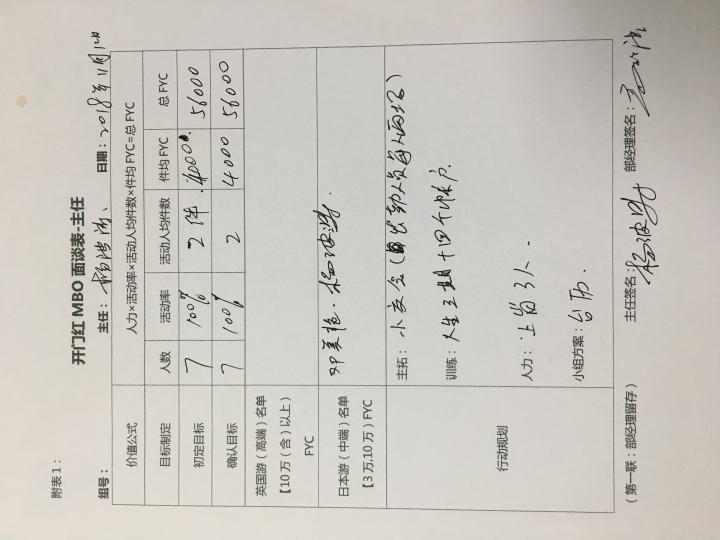 附表1：
开门红 MBO 面谈表-主任
组号： 主任： 日期：2018年11月12日
价值公式 人力×活动率×活动人均件数×件均 FYC=总 FYC
目标制定 人数 活动率 活动人均件数 件均 FYC 总 FYC
初定目标 7 100% 2件 4000 56000
确认目标 7 100% 2 4000 56000
英国游（高端）名单
【10 万（含）以上）
FYC
日本游（中端）名单 邓美艳
【3 万,10 万）FYC
行动规划
主拓：小交会
训练：人生三期十四个帐户
人力：上岗3人
小组方案：台历
主任签名： 部经理签名：
（第一联：部经理留存）